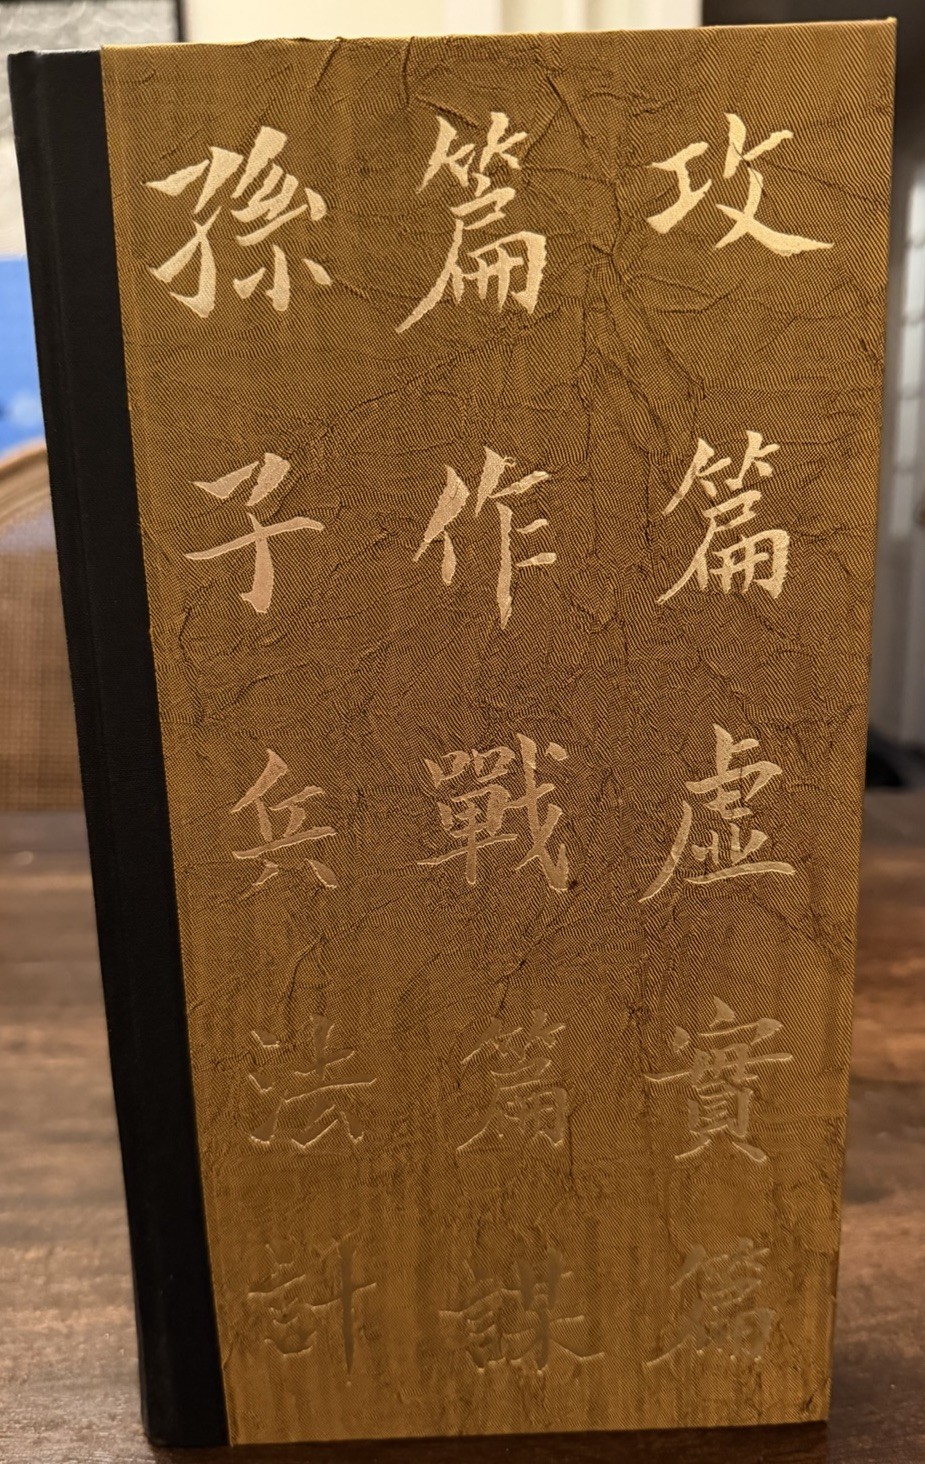 孫子兵法計
篇作戰篇謀
攻篇虛實篇